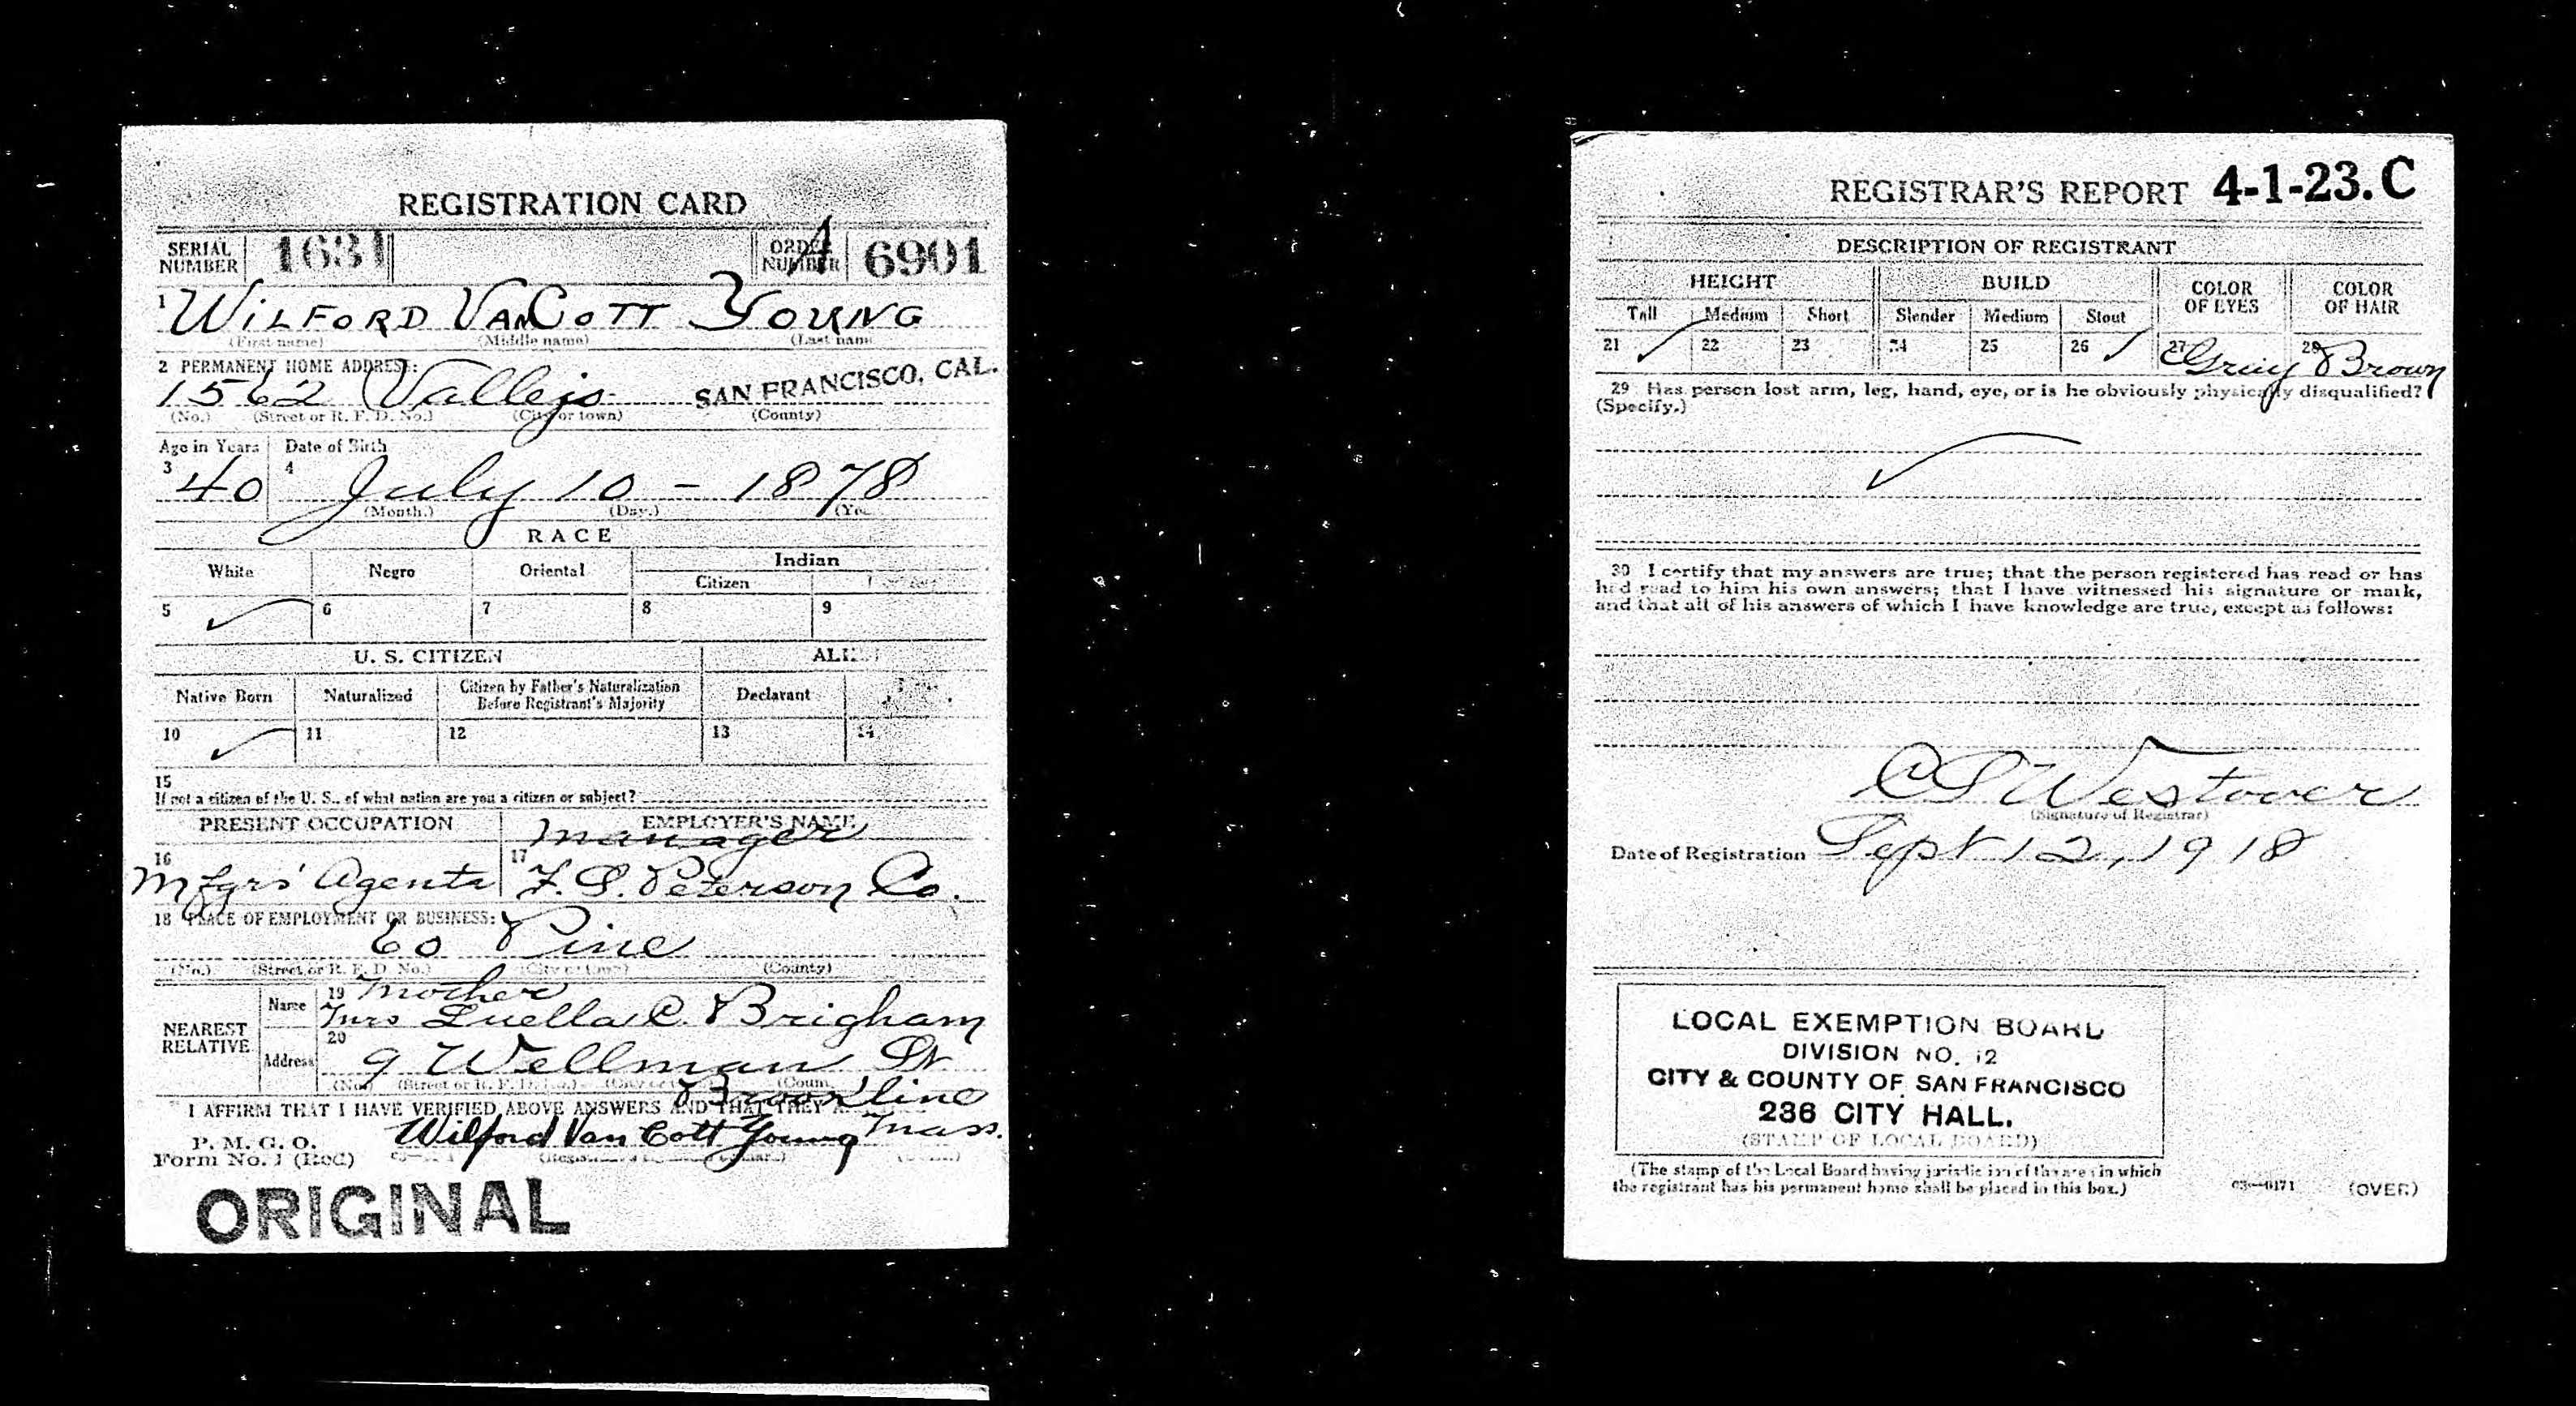 REGISTRATION CARD
SERIAL NUMBER 1631 ORDER NUMBER A 6901
1 WILFORD VANCOTT YOUNG
(First name) (Middle name) (Last name
2 PERMANENT HOME ADDRESS:
1562 Vallejo SAN FRANCISCO, CAL.
(No.) (Street or R. F. D. No.) (City or town) (County)
Age in Years Date of Birth
3 40 4 July 10 - 1878
(Month.) (Day.)
RACE
White Negro Oriental Indian
Citizen
5 ✓ 6 7 8 9
U. S. CITIZEN
Native Born Naturalized Citizen by Father's Naturalization Before Registrant's Majority Declarant
10 ✓ 11 12 13 14
15
If not a citizen of the U. S., of what nation are you a citizen or subject?
PRESENT OCCUPATION EMPLOYER'S NAME
manager
16 Mfgrs' Agents 17 F. S. Peterson Co.
18 PLACE OF EMPLOYMENT OR BUSINESS:
60 Pine
(No.) (Street or R. F. D. No.) (City or town) (County)
NEAREST RELATIVE
Name 19 Mother
Mrs Luella C. Brigham
Address 20 9 Wellman St
(No.) (Street or R. F. D. No.)
Brookline
I AFFIRM THAT I HAVE VERIFIED ABOVE ANSWERS AND THAT THEY
Mass.
P. M. G. O.
Form No. 1 (Red)
Wilford Van Cott Young
ORIGINAL
REGISTRAR'S REPORT 4-1-23. C
DESCRIPTION OF REGISTRANT
HEIGHT BUILD COLOR OF EYES COLOR OF HAIR
Tall Medium Short Slender Medium Stout
21 ✓ 22 23 24 25 26 ✓ 27 Gray 28 Brown
29 Has person lost arm, leg, hand, eye, or is he obviously physically disqualified?
(Specify.)
✓
30 I certify that my answers are true; that the person registered has read or has
had read to him his own answers; that I have witnessed his signature or mark,
and that all of his answers of which I have knowledge are true, except as follows:
Westover
(Signature of Registrar)
Date of Registration Sept 12, 1918
LOCAL EXEMPTION BOARD
DIVISION NO. 12
CITY & COUNTY OF SAN FRANCISCO
236 CITY HALL.
(STAMP OF LOCAL BOARD)
(The stamp of the Local Board having jurisdiction of the area in which
the registrant has his permanent home shall be placed in this box.)
03—6171 (OVER)